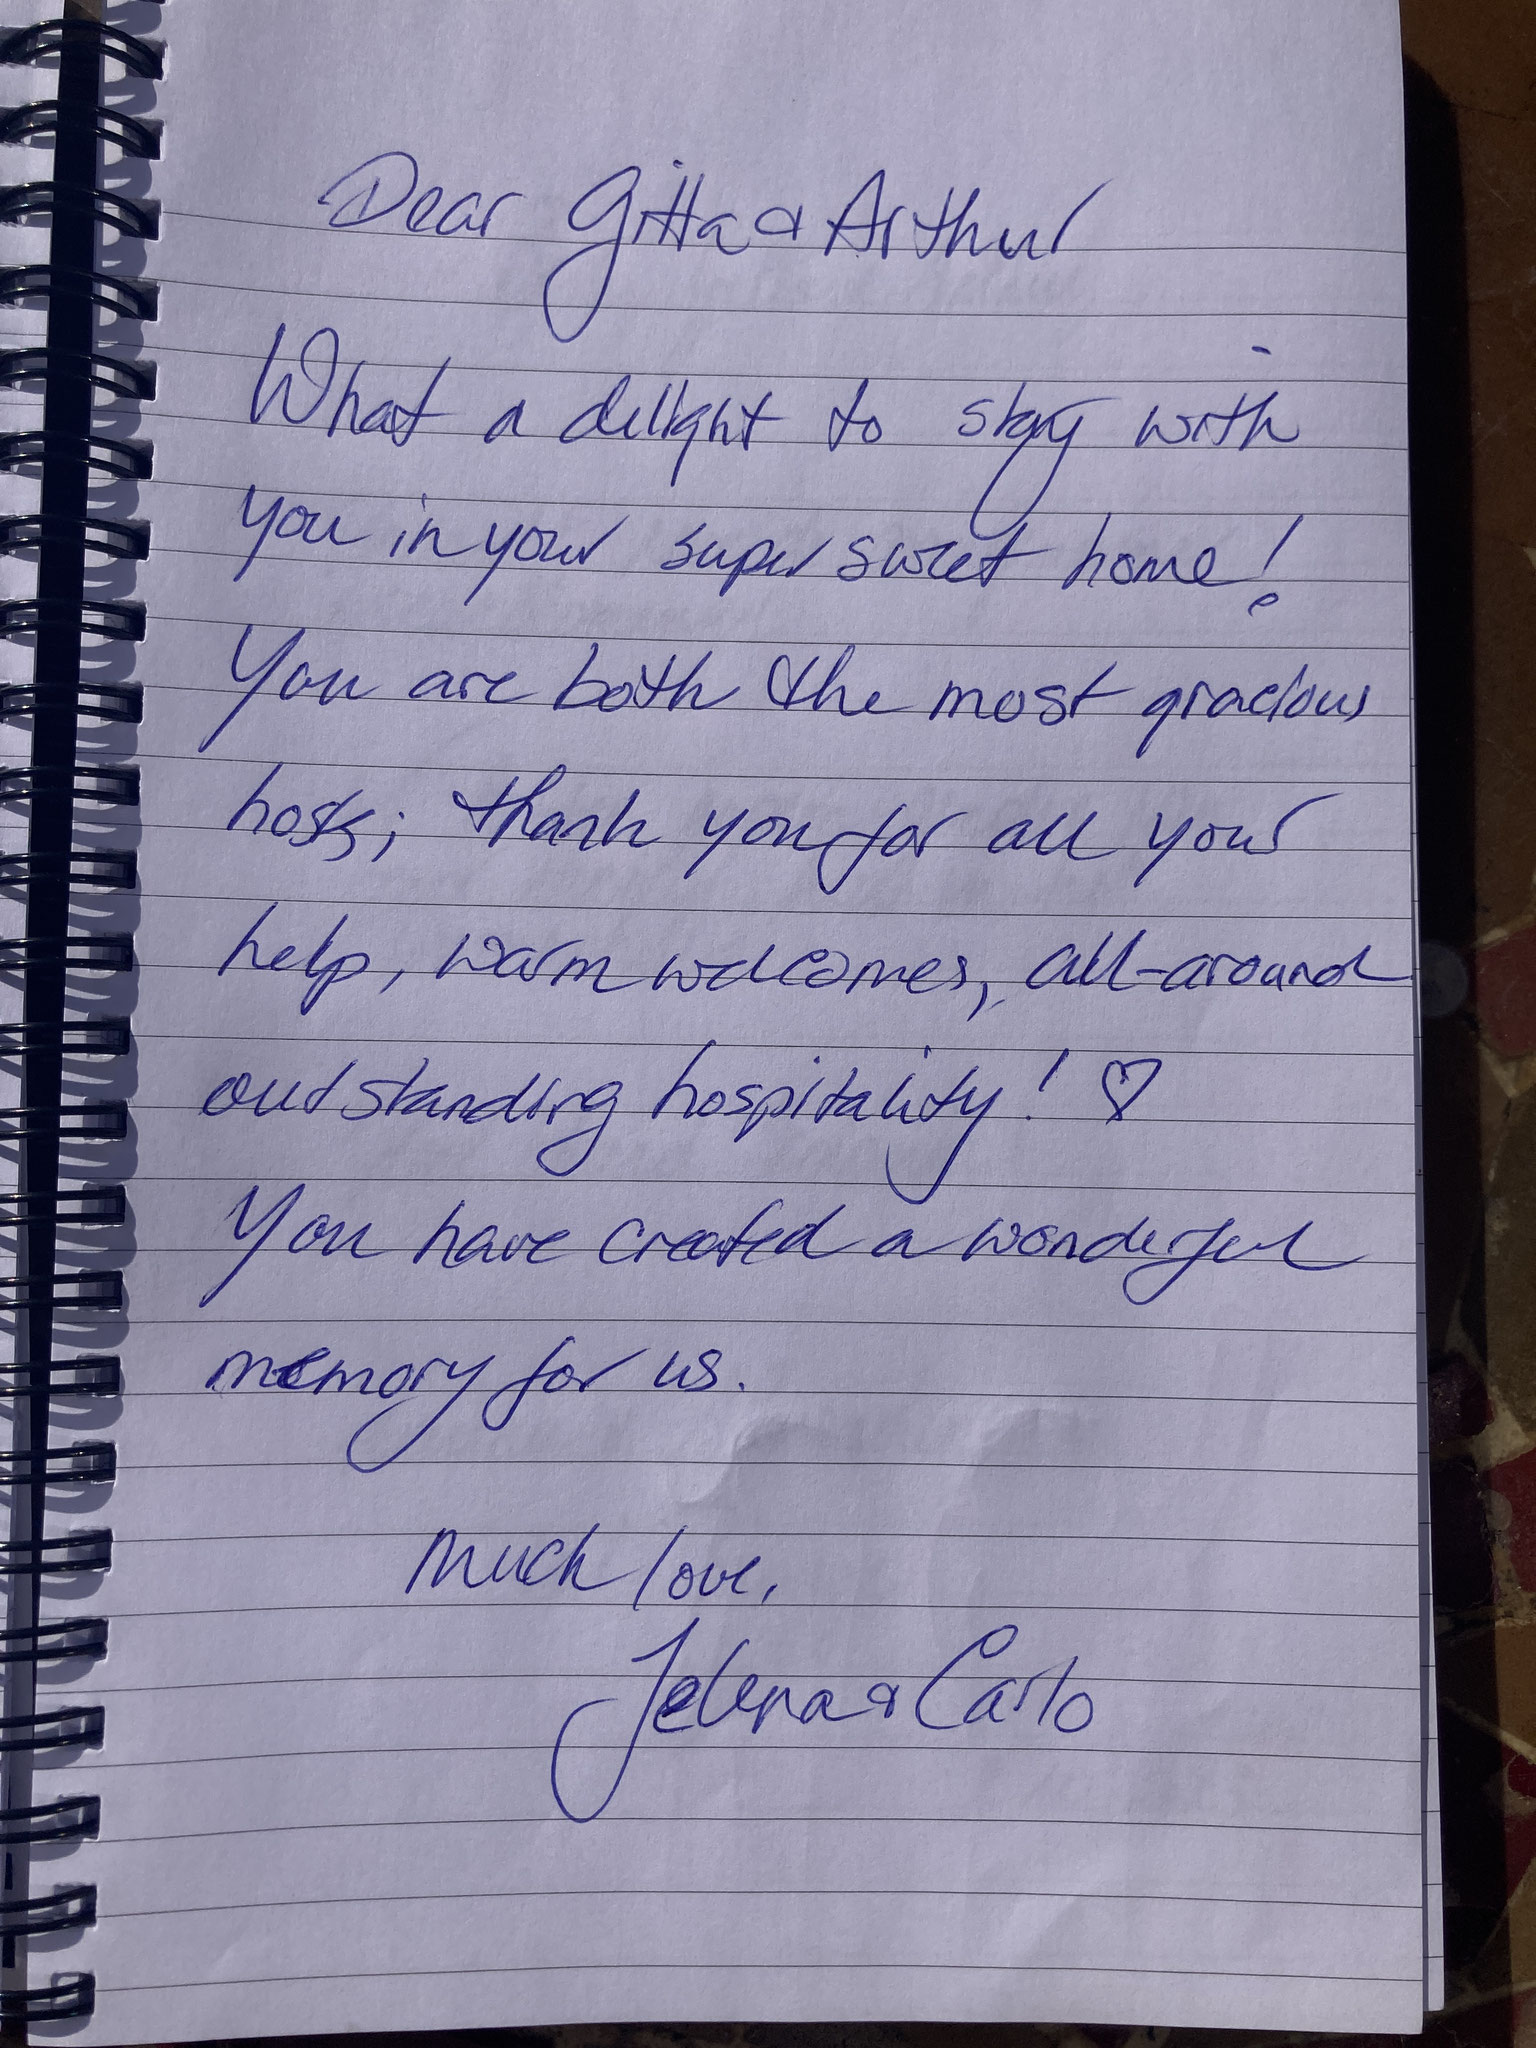 Dear Gitta & Arthur
What a delight to stay with
you in your super sweet home!
You are both the most gracious
hosts; thank you for all your
help, warm welcomes, all-around
outstanding hospitality! ♡
You have created a wonderful
memory for us.
Much love,
Jelena & Carlo